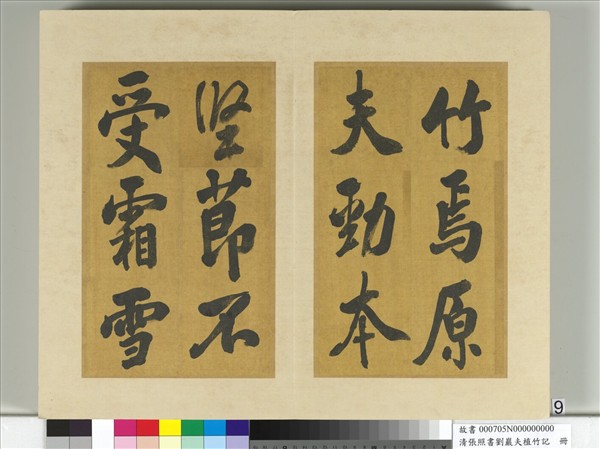 竹焉原
夫勁本
堅節不
受霜雪
9
故書 000705N000000000
清張照書劉巖夫植竹記 冊